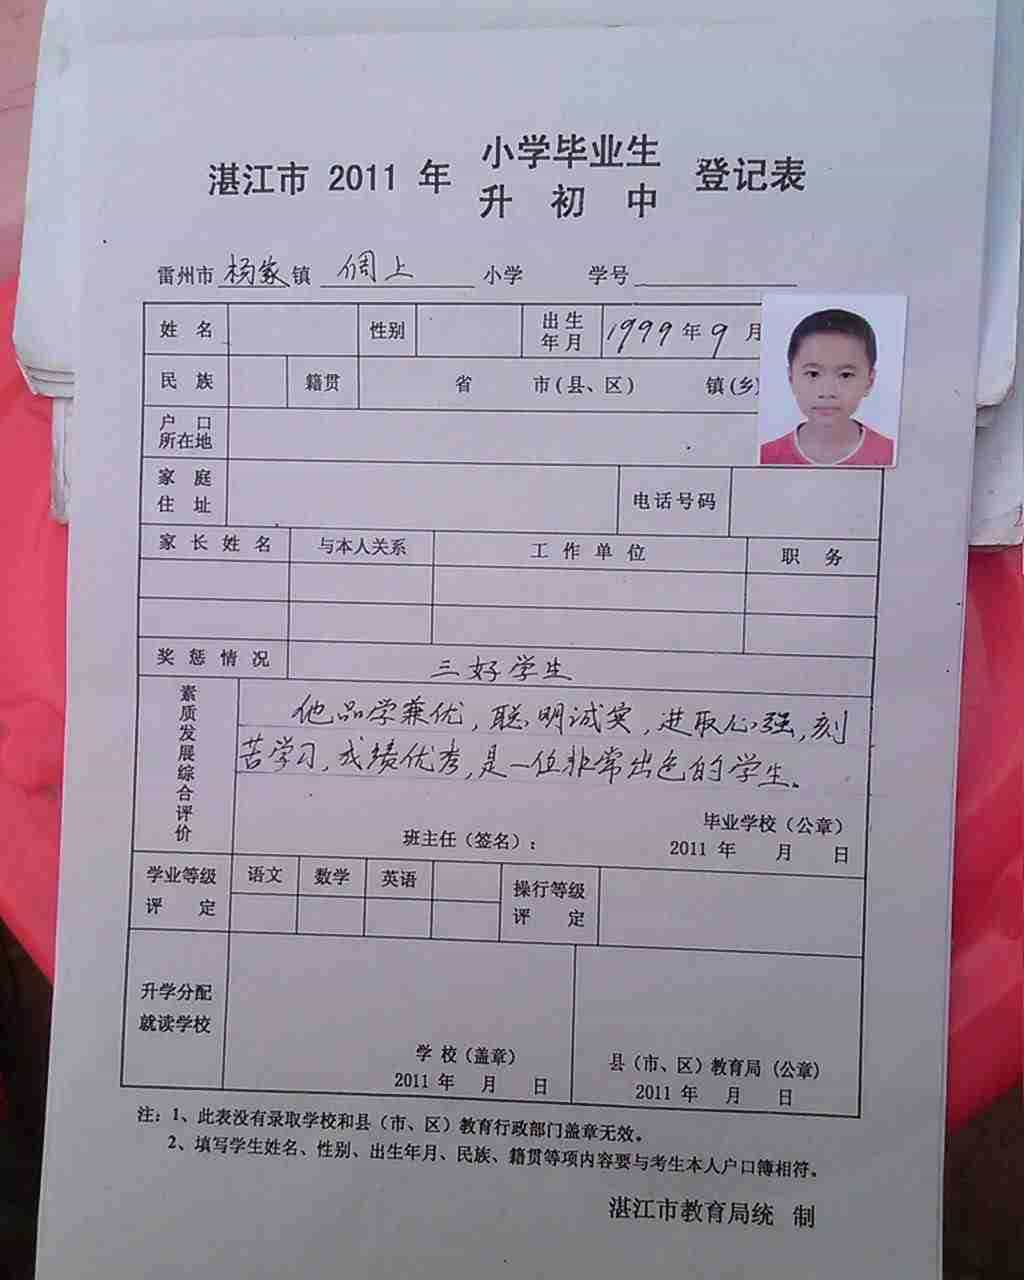 湛江市 2011 年 小学毕业生 登记表
升 初 中
雷州市 杨家 镇 倜上 小学 学号
姓 名 性别 出生年月 1999 年 9 月
民 族 籍贯 省 市(县、区) 镇(乡)
户 口 所在地
家 庭 住 址 电话号码
家 长 姓 名 与本人关系 工 作 单 位 职 务
奖 惩 情 况 三好学生
素质发展综合评价
他品学兼优,聪明诚实,进取心强,刻
苦学习,成绩优秀,是一位非常出色的学生。
毕业学校(公章)
班主任(签名): 2011 年 月 日
学业等级评 定 语文 数学 英语 操行等级评 定
升学分配
就读学校
学 校(盖章) 县(市、区)教育局(公章)
2011 年 月 日 2011 年 月 日
注:1、此表没有录取学校和县(市、区)教育行政部门盖章无效。
2、填写学生姓名、性别、出生年月、民族、籍贯等项内容要与考生本人户口簿相符。
湛江市教育局统 制